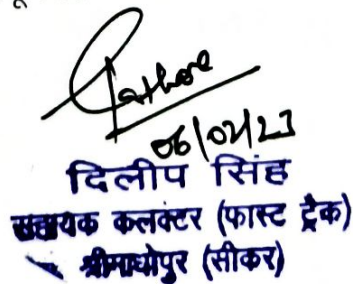 Rathore
06/02/23
दिलीप सिंह
सहायक कलक्टर (फास्ट ट्रैक)
श्रीमाधोपुर (सीकर)